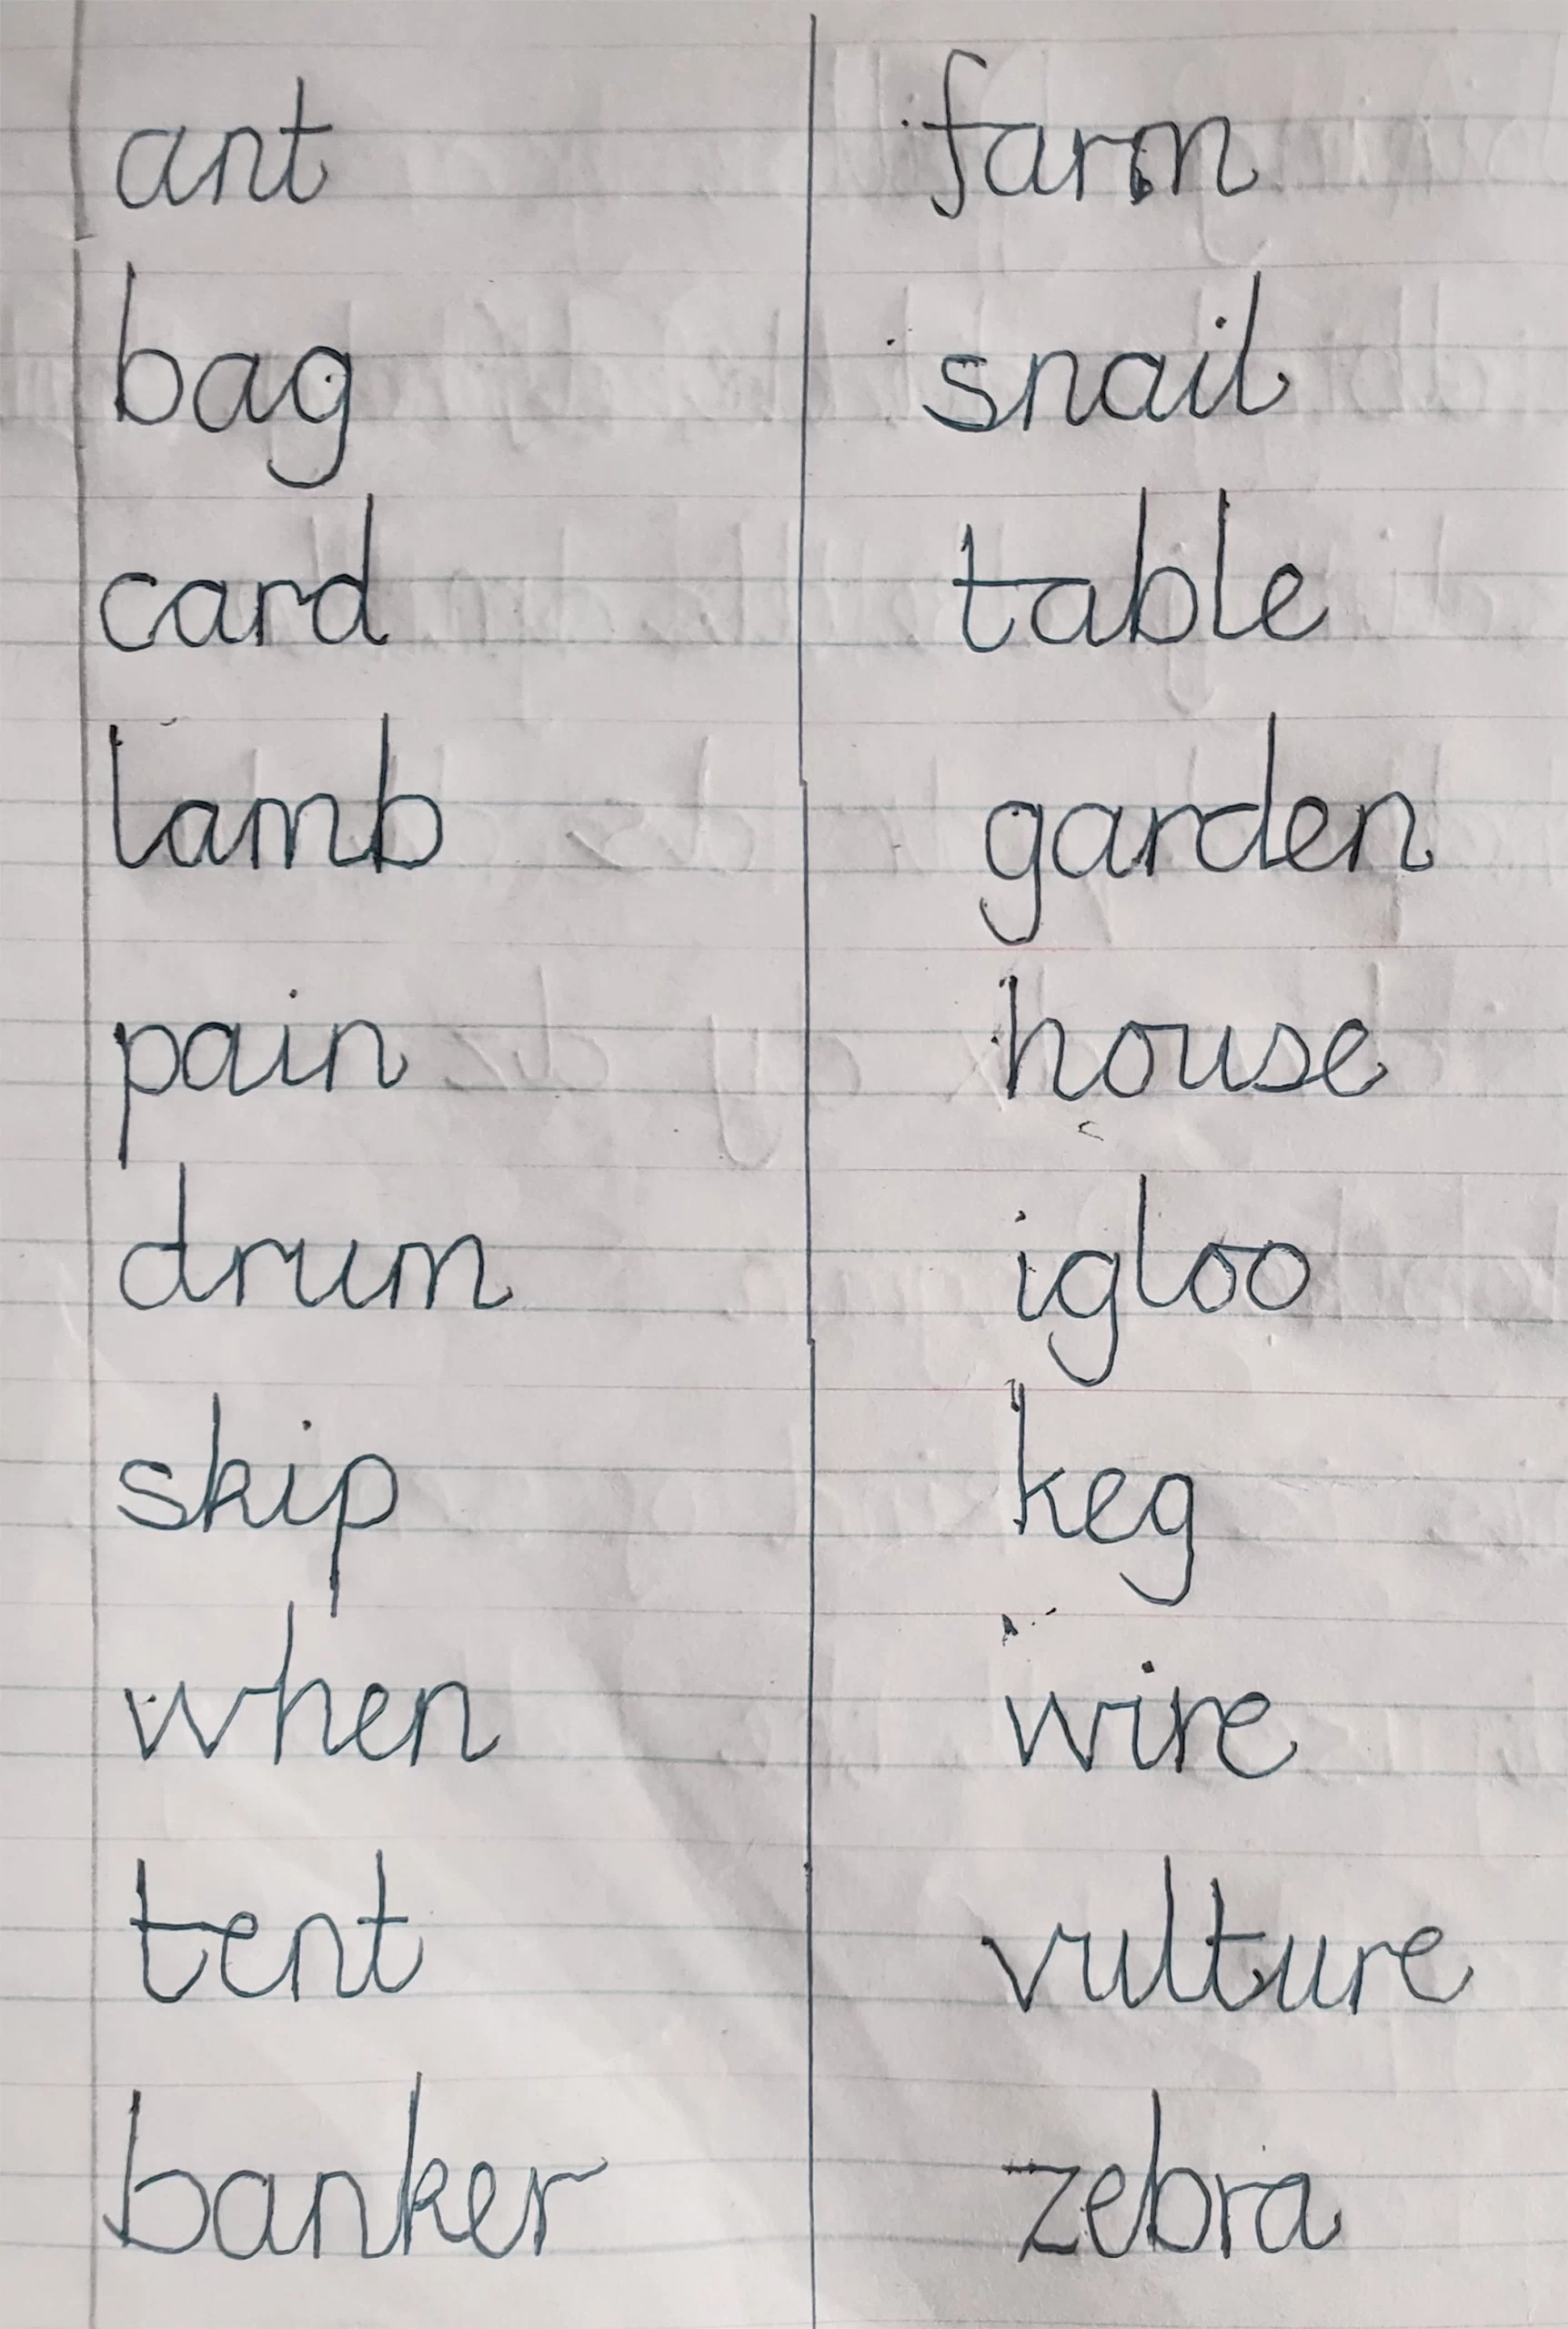 ant
bag
card
lamb
pain
drum
skip
when
tent
banker
farm
snail
table
garden
house
igloo
keg
wire
vulture
zebra